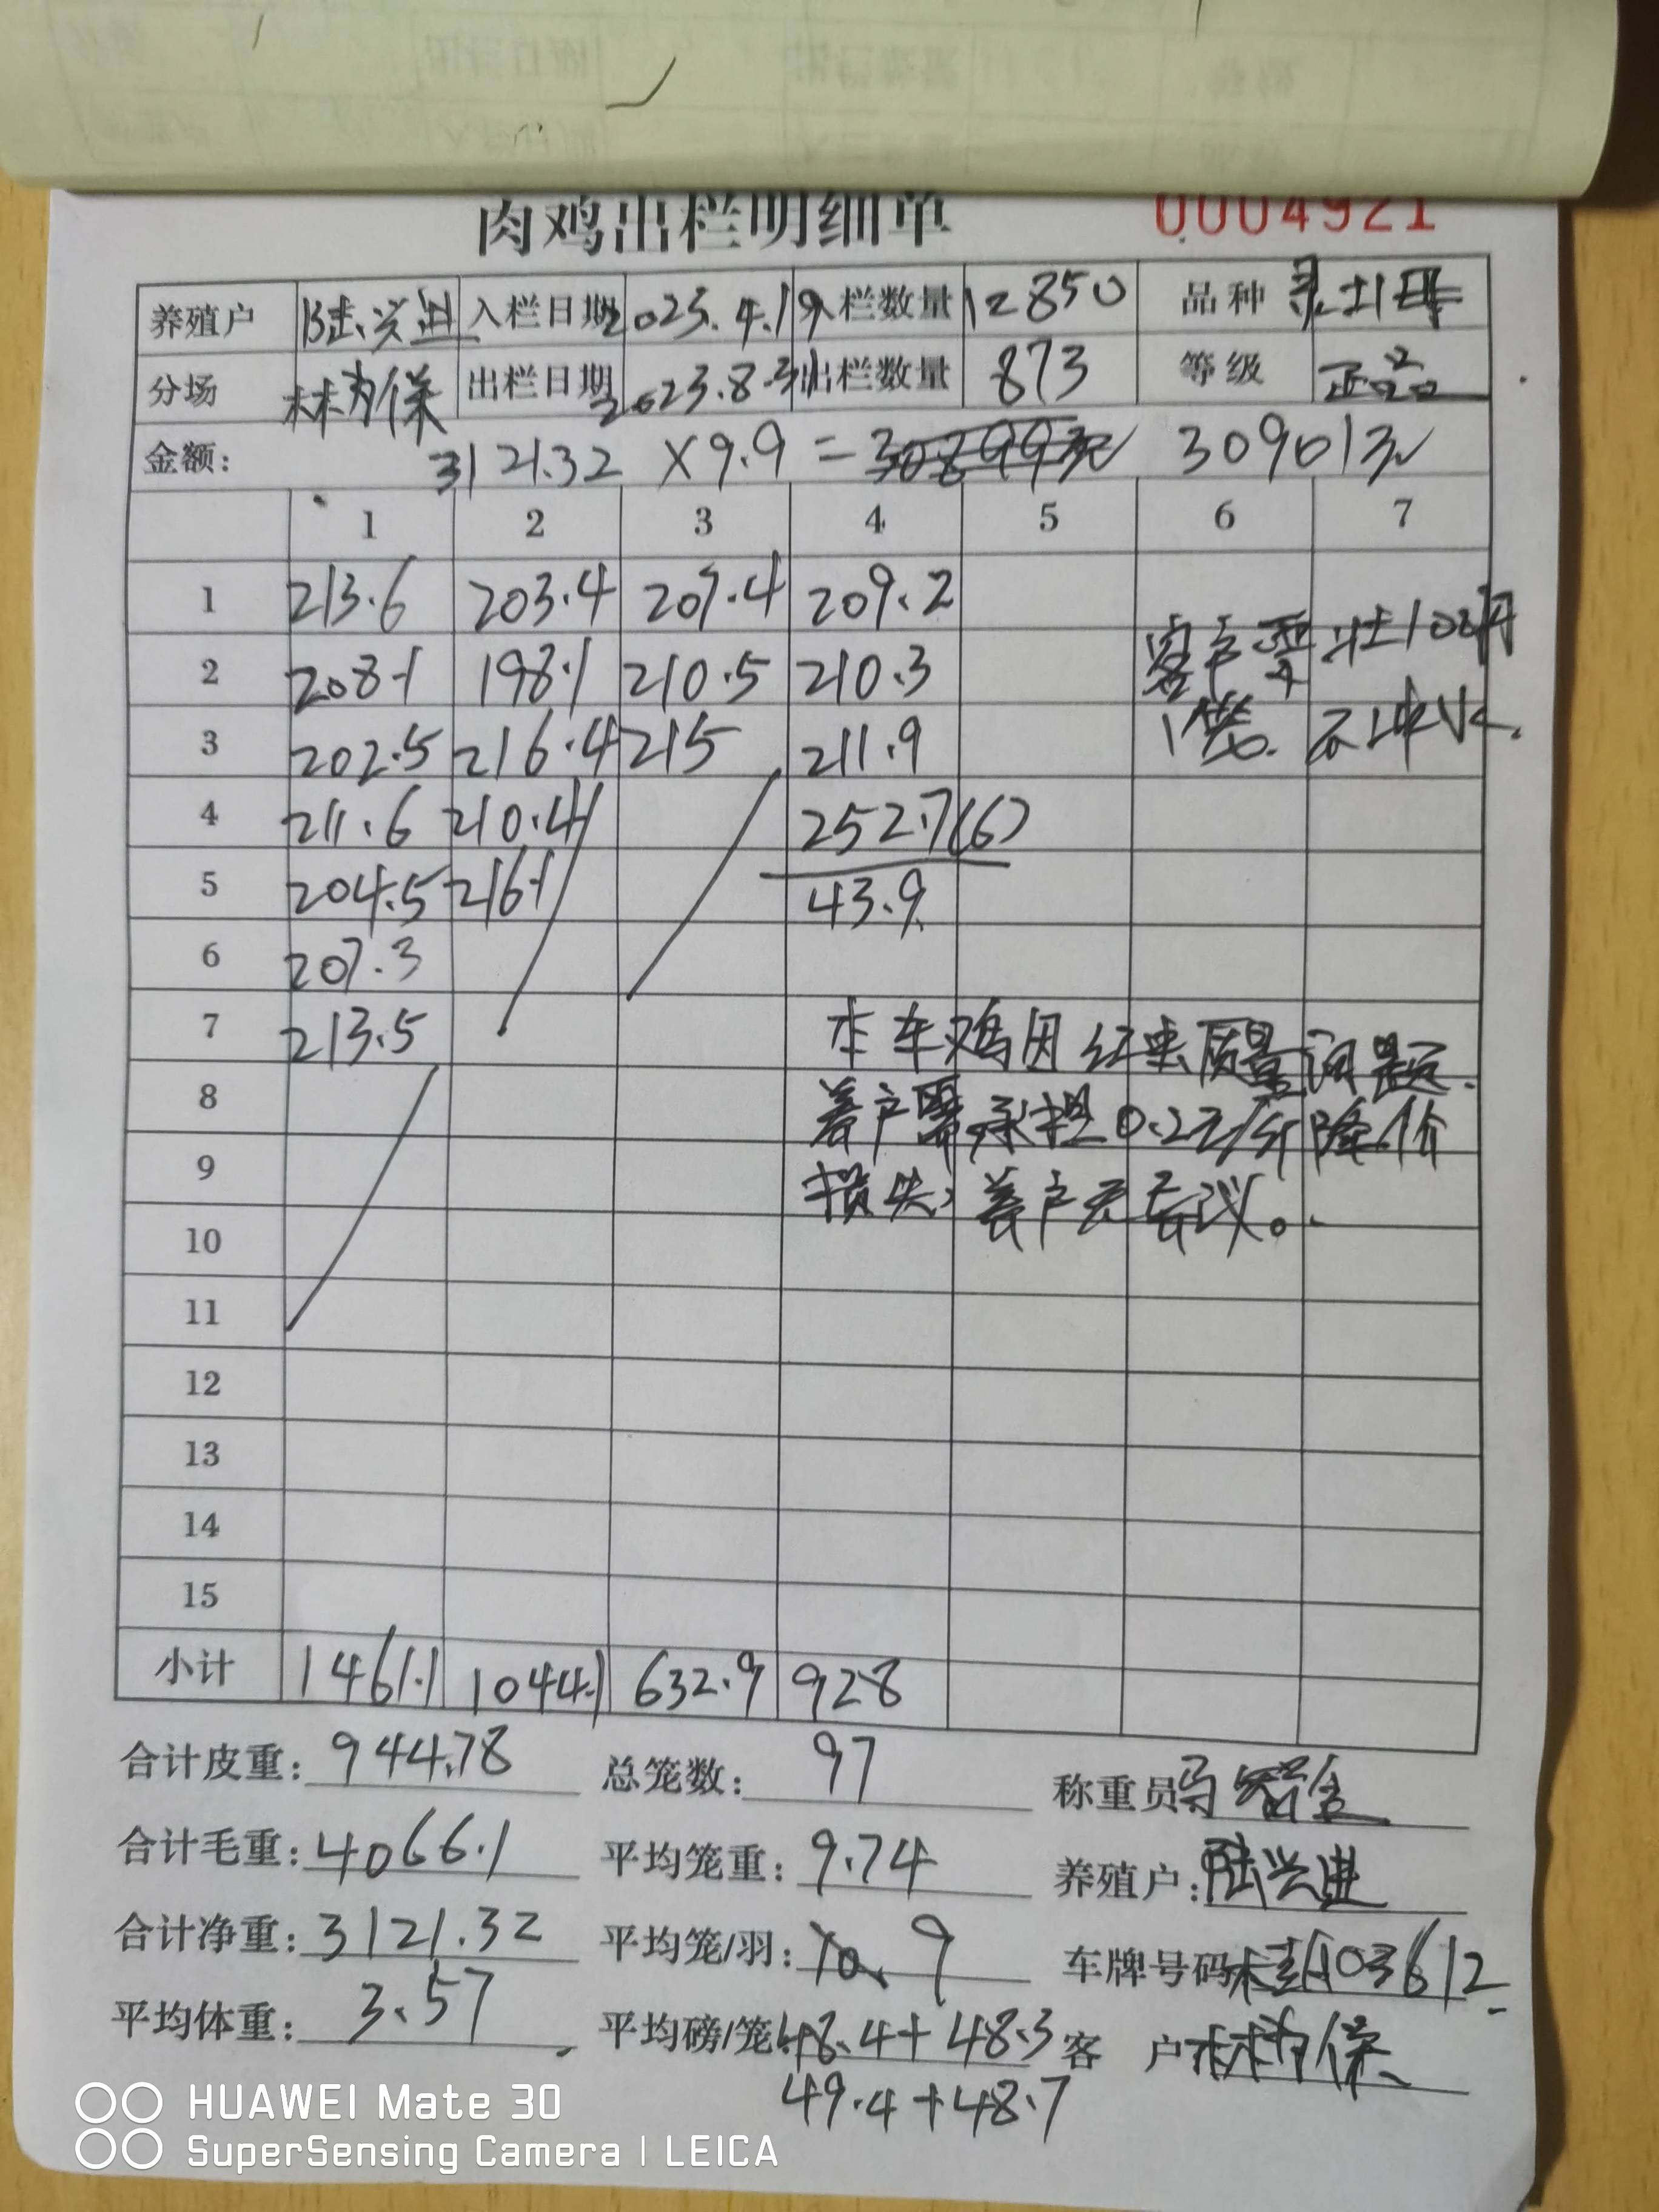 肉鸡出栏明细单 0004921
养殖户 陆兴进 入栏日期 2023.4.19 入栏数量 12850 品种
分场 林为保 出栏日期 2023.8.31 出栏数量 873 等级 正品
金额: 3121.32 ×9.9 = 30901元
1 2 3 4 5 6 7
1 213.6 203.4 207.4 209.2
2 208.1 198.1 210.5 210.3 客户要 100
3 202.5 216.4 215 211.9 1 不冲水.
4 211.6 210.4 252.7(6)
5 204.5 216.1 43.9
6 207.3
7 213.5 本车鸡因 质量问题.
8 养户需承担0.2元/斤降价
9 损失，养户无异议。
10
11
12
13
14
15
小计 1461.1 1044.1 632.9 928
合计皮重: 944.78 总笼数: 97 称重员
合计毛重: 4066.1 平均笼重: 9.74 养殖户: 陆兴进
合计净重: 3121.32 平均笼/羽: 9 车牌号码 桂A03612
平均体重: 3.57 平均磅/笼: 48.4+48.3 客 户 林为保
49.4+48.7
HUAWEI Mate 30
SuperSensing Camera | LEICA